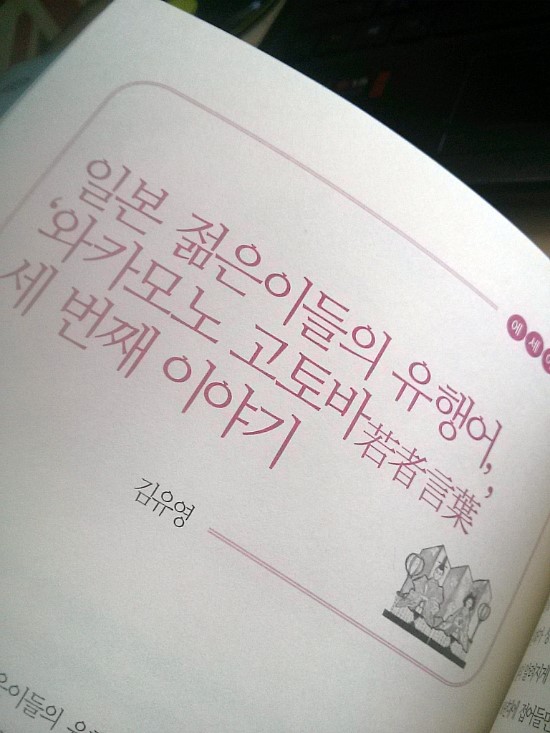 에세
일본 젊은이들의 유행어,
‘와카모노 고토바若者言葉’,
세 번째 이야기
김유영